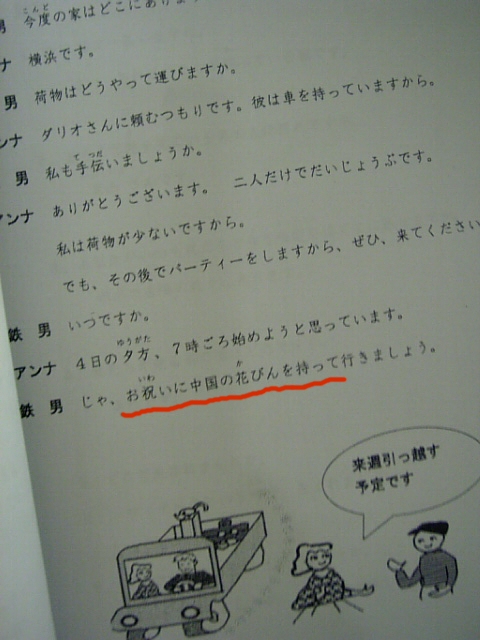 男 今度の家はどこにありま
こんど
ナ 横浜です。
男 荷物はどうやって運びますか。
ンナ ダリオさんに頼むつもりです。彼は車を持っていますから。
男 私も手伝いましょうか。
てつだ
アンナ ありがとうございます。 二人だけでだいじょうぶです。
私は荷物が少ないですから。
でも、その後でパーティーをしますから、ぜひ、来てください
鉄男 いつですか。
アンナ 4日の夕方、7時ごろ始めようと思っています。
ゆうがた
鉄男 じゃ、お祝いに中国の花びんを持って行きましょう。
いわ
か
来週引っ越す
予定です